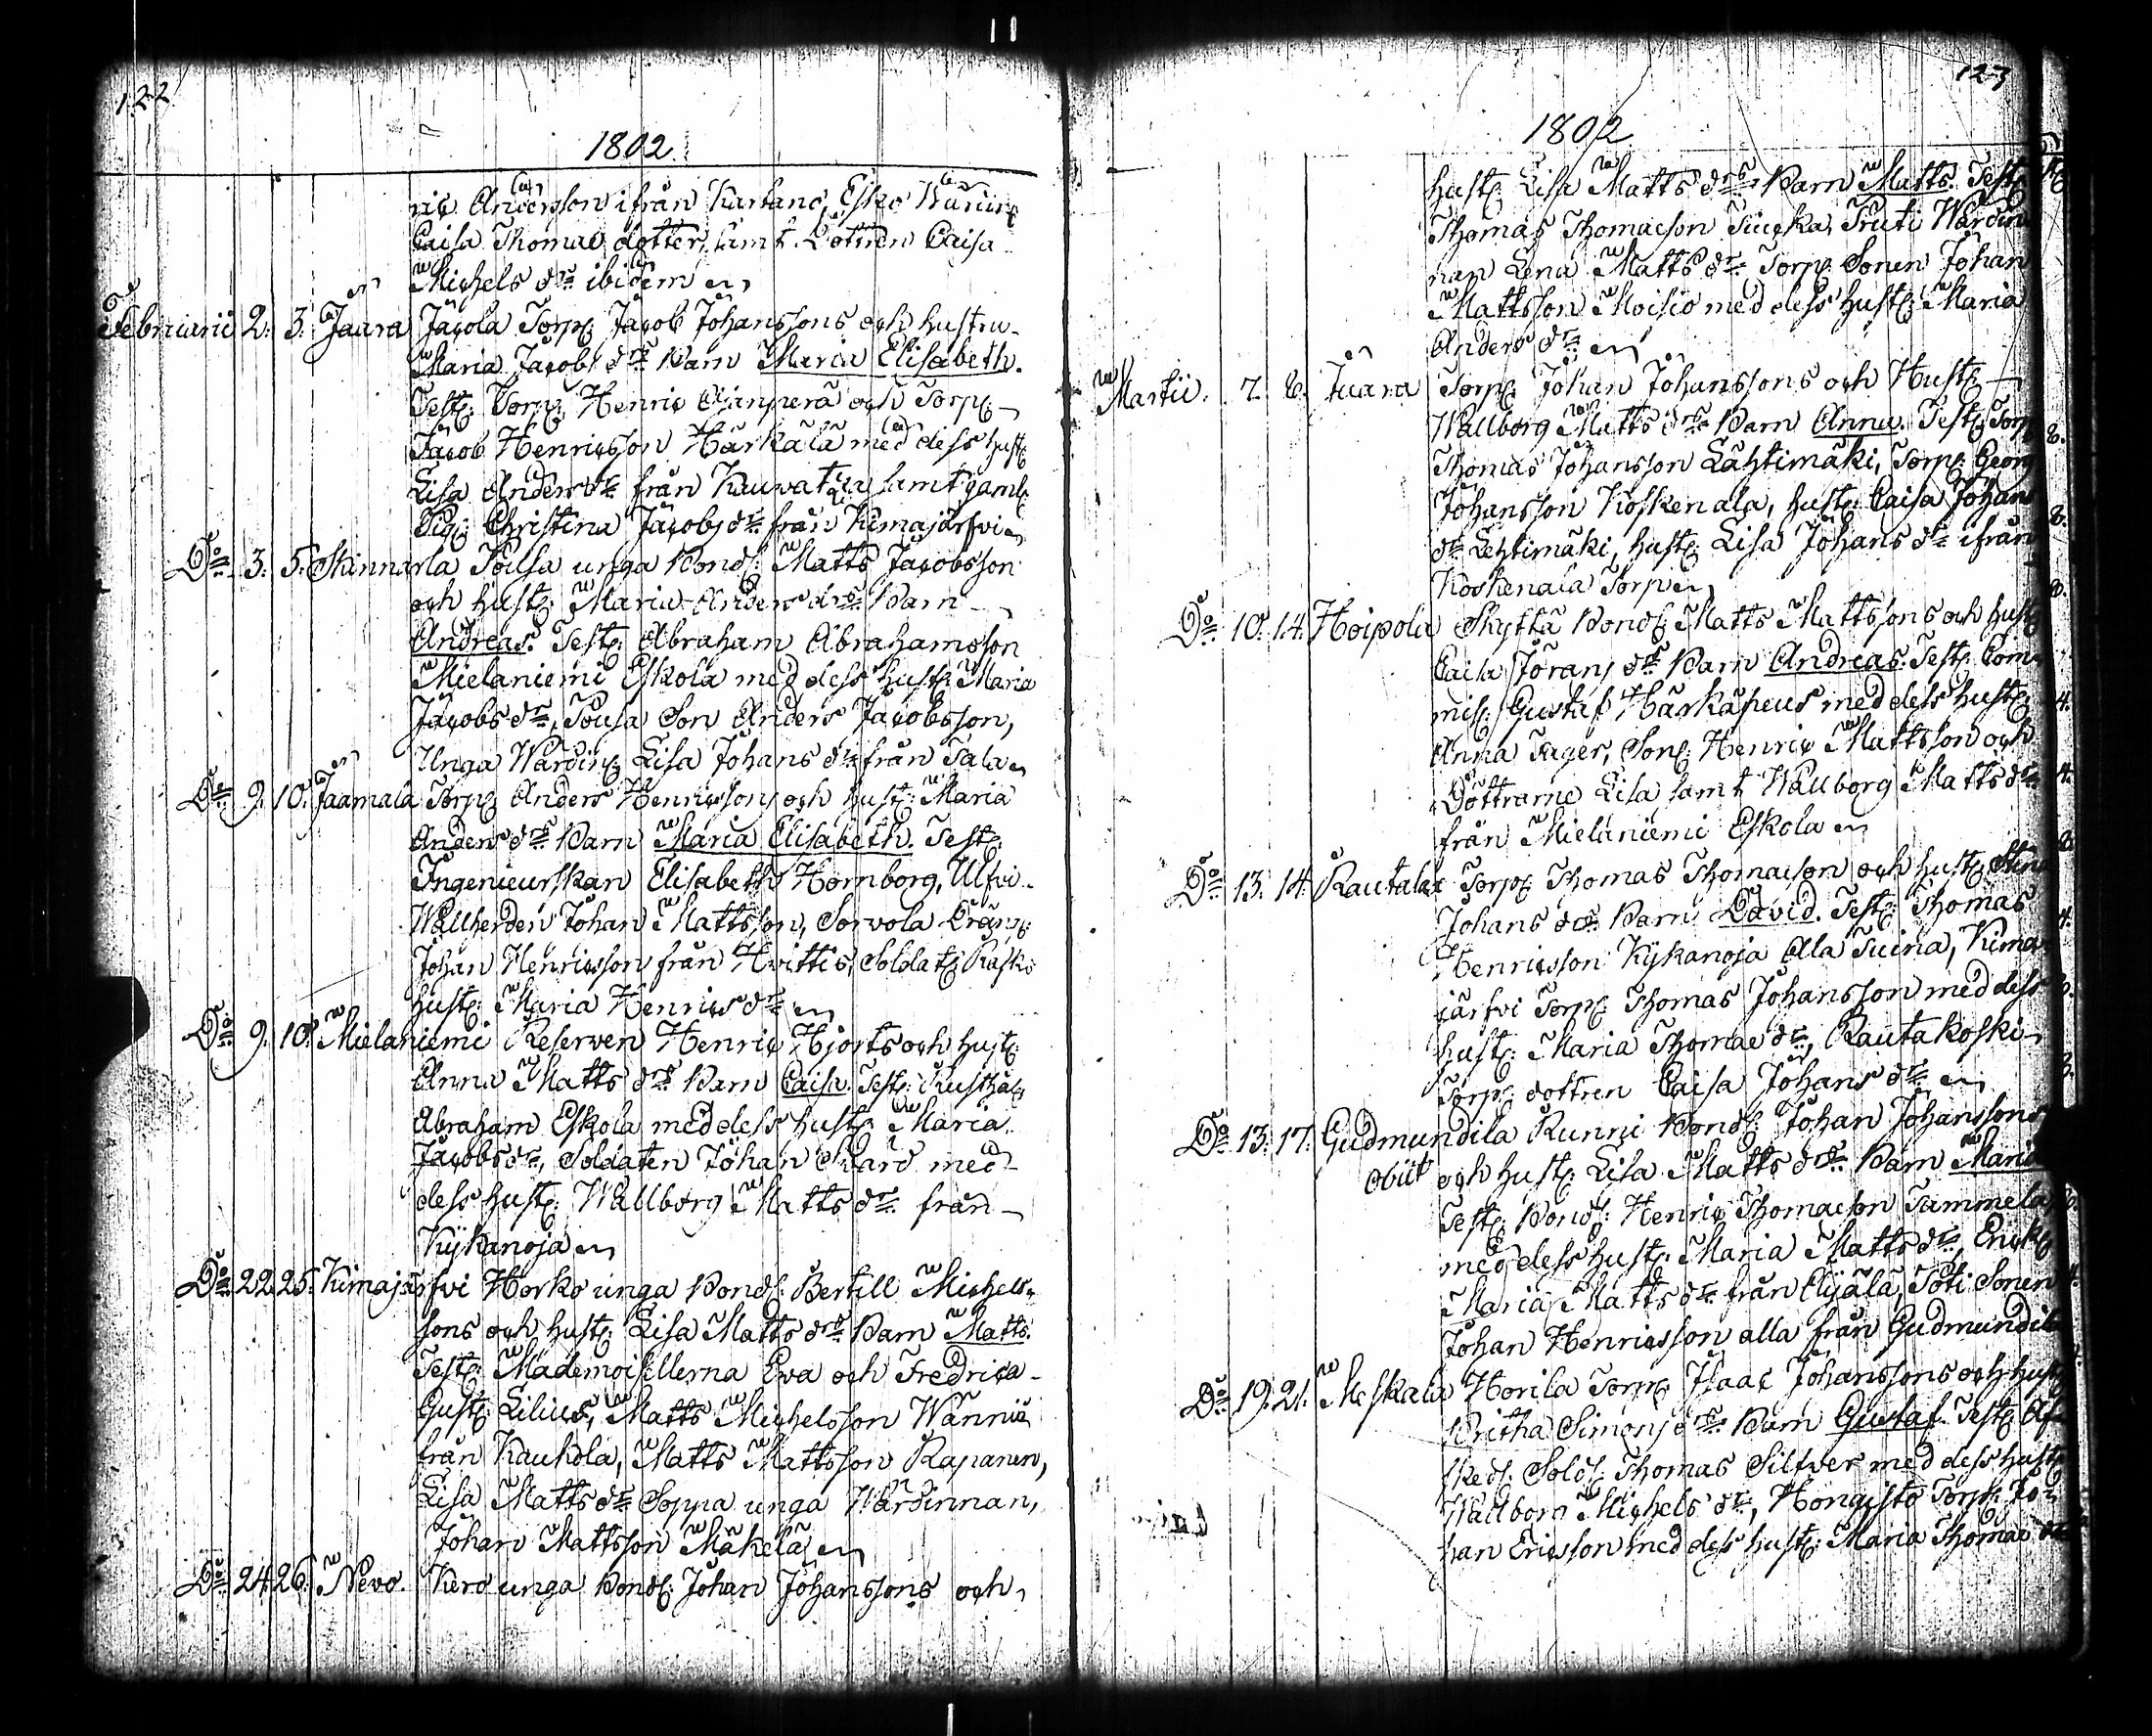 122
1802.
ric Andersson ifrån Karhano, Esko Wärdin:
Caisa Thomae dotter, samt Dottren Caisa
Michels dr ibidem
Februarii 2. 3. Jaara Jacola Torp: Jacob Johanssons och hustru
Maria Jacobs drs Barn Maria Elisabeth.
Test: Torp: Henric Äijänperä och Torp:
Jacob Henricsson Härkälä med dess hust:
Lisa Anders dr från Kauvatsa samt gaml:
Pig: Christina Jacobs dr från Kimajärfvi
Do 3. 5. Skinnarla Pousa unga Bond: Matts Jacobsson
och hust: Maria Anders drs Barn
Andreas. Test: Abraham Abrahamsson
Mielaniemi Eskola med dess hust: Maria
Jacobs dr, Pousa Son Anders Jacobsson,
Unga Wärdin: Lisa Johans dr från Tala
Do 9. 10. Jaamala Torp: Anders Henricssons och hust: Maria
Anders drs Barn Maria Elisabeth. Test:
Ingenieurskan Elisabeth Hornborg, Ulfvi
Wallherden Johan Mattsson, Sorvola Dräng:
Johan Henricsson från Hvittis, Soldat: Rask:
hust: Maria Henrics dr
Do 9. 10. Mielaniemi Reserven Henric Hjorts och hust:
Anna Matts drs Barn Caisa. Test: Rusthål:
Abraham Eskola med dess hust: Maria
Jacobs dr, Soldaten Johan Svärd med
dess hust: Wallborg Matts dr från
Kykänoja
Do 22. 25. Kimajärfvi Horko unga Bond: Bertill Michels-
sons och hust: Lisa Matts drs Barn Matts.
Test: Mademoisellerna Eva och Fredrica
Gust: Lilius, Matts Michelsson Wannic
från Kauhola, Matts Mattsson Rapanen,
Lisa Matts dr Soppa unga Wärdinnan,
Johan Mattsson Mäkelä
Do 24. 26. Nevo. Kero unga Bond: Johan Johanssons och
123
1802
hust: Lisa Matts drs Barn Matts. Test:
Thomas Thomasson Fruti Wärdin
nan Lena Matts dr Torp: Sonen Johan
Mattsson Moisio med dess hust: Maria
Anders dr
Martii. 7. 8. Juara Torp: Johan Johanssons och Hust:
Wallborg Matts drs Barn Anna. Test: Torp
Thomas Johansson Lähtimäki, Torp: Georg
Johansson Koskenala, hust: Caisa Johans
dr Lehtimäki, hust: Lisa Johans dr ifrån
Koskenala Torp
Do 10. 14. Hoipola Skyttä Bond: Matts Mattssons och hust:
Caisa Jörans drs Barn Andreas. Test: Com-
mis: Gustaf Härkäpeus med dess hust:
Anna Sager, Son: Henric Mattsson och
Döttrarne Lisa samt Wallborg Matts dr
från Mielaniemi Eskola
Do 13. 14. Rautala Torp: Thomas Thomasson och hust: Stina
Johans drs Barn David. Test: Thomas
Henricsson Kykänoja Ala Tuina, Kima
järfvi Torp: Thomas Johansson med dess
hust: Maria Thomae dr, Rautakoski
Torp: dottren Caisa Johans dr
Do 13. 17. Gudmundila Runni Bond: Johan Johanssons
obiit och hust: Lisa Matts drs Barn Maria
Test: Bond: Henric Thomasson Tammela
med dess hust: Maria Matts dr Enck:
Maria Matts dr från Äijälä, Töti Sonen
Johan Henricsson alla från Gudmundila
Do 19. 21. Meskala Horila Torp: Isaac Johanssons och hust:
Britha Simons drs Barn Gustaf. Test: Af-
sked: Sold: Thomas Silfver med dess hust:
Wallborg Michels dr, Hongisto Torp: Jo-
han Ericsson med dess hust: Maria Thomae dr